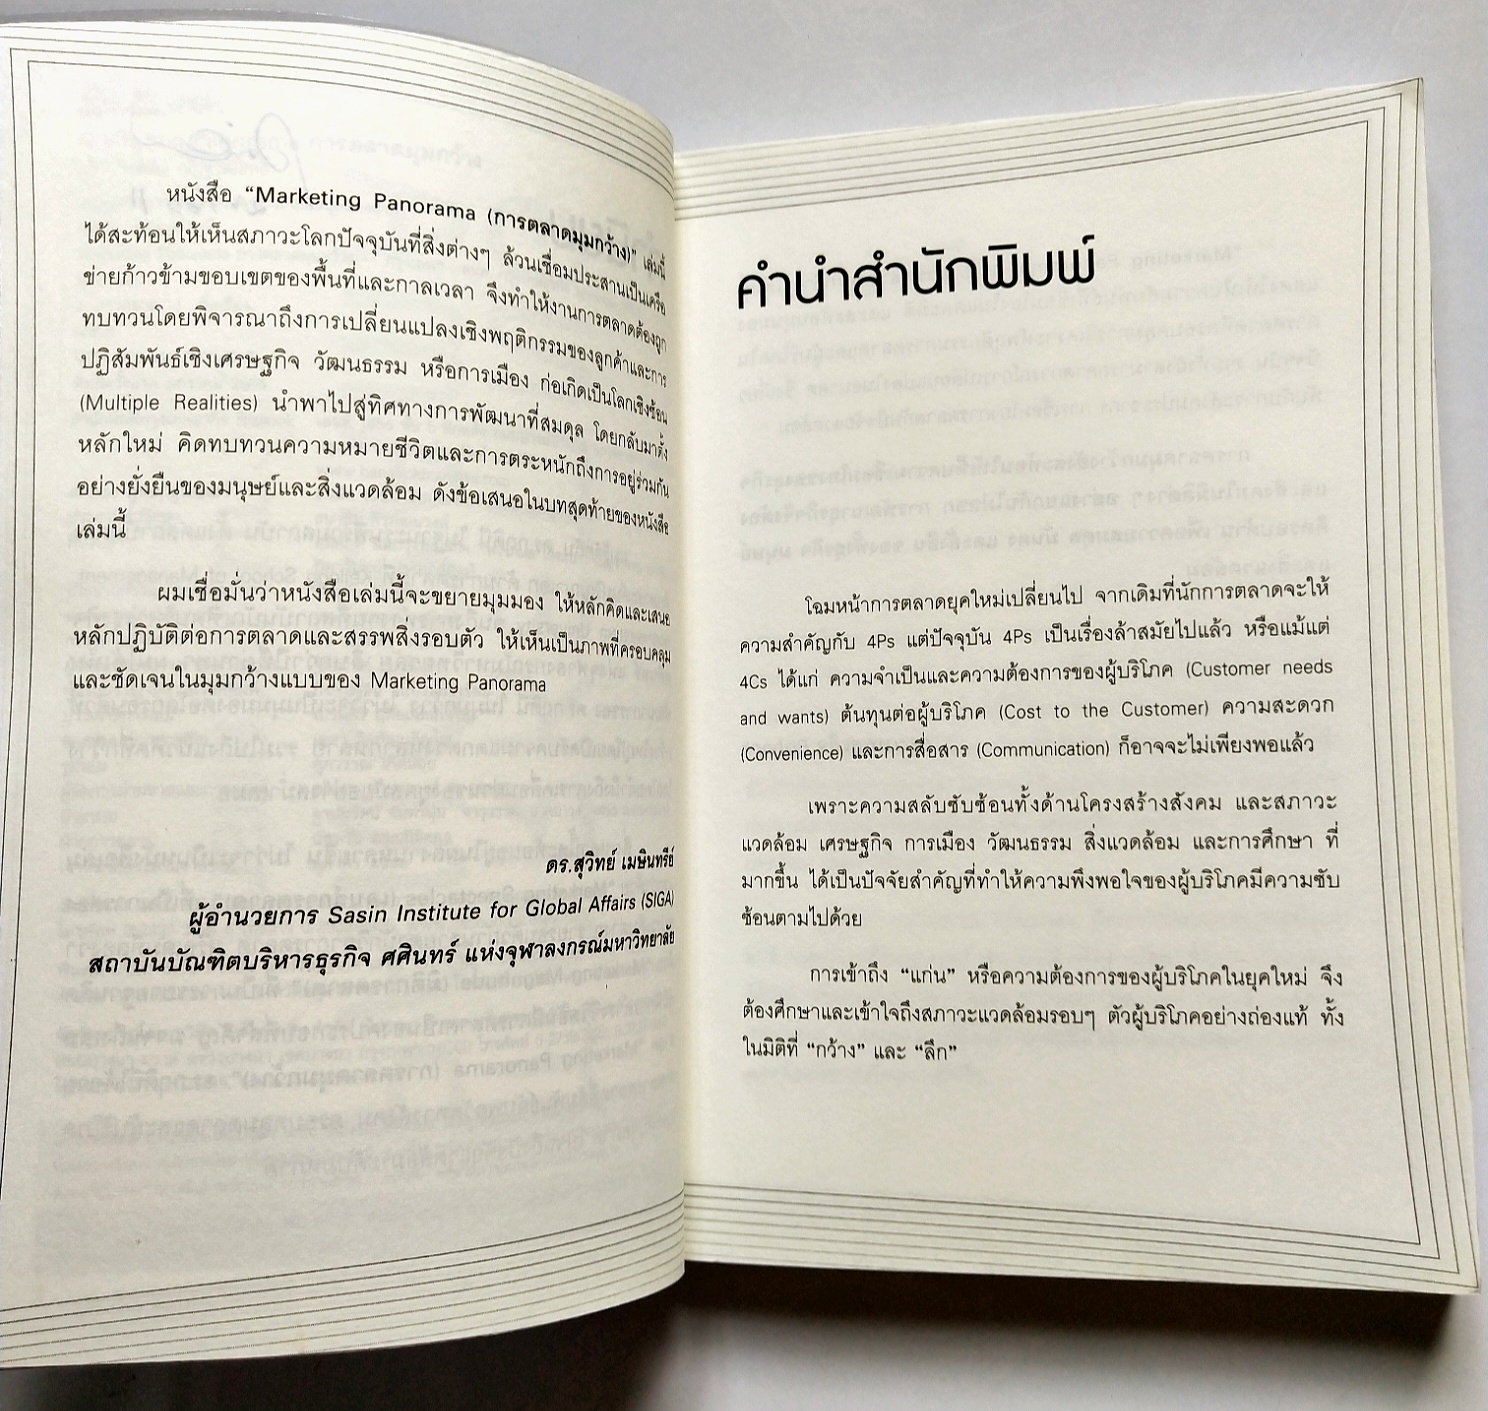 หนังสือ “Marketing Panorama (การตลาดมุมกว้าง)” เล่มนี้
ได้สะท้อนให้เห็นสภาวะโลกปัจจุบันที่สิ่งต่างๆ ล้วนเชื่อมประสานเป็นเครือ
ข่ายก้าวข้ามขอบเขตของพื้นที่และกาลเวลา จึงทำให้งานการตลาดต้องถูก
ทบทวนโดยพิจารณาถึงการเปลี่ยนแปลงเชิงพฤติกรรมของลูกค้าและการ
ปฏิสัมพันธ์เชิงเศรษฐกิจ วัฒนธรรม หรือการเมือง ก่อเกิดเป็นโลกเชิงซ้อน
(Multiple Realities) นำพาไปสู่ทิศทางการพัฒนาที่สมดุล โดยกลับมาตั้ง
หลักใหม่ คิดทบทวนความหมายชีวิตและการตระหนักถึงการอยู่ร่วมกัน
อย่างยั่งยืนของมนุษย์และสิ่งแวดล้อม ดังข้อเสนอในบทสุดท้ายของหนังสือ
เล่มนี้
ผมเชื่อมั่นว่าหนังสือเล่มนี้จะขยายมุมมอง ให้หลักคิดและเสนอ
หลักปฏิบัติต่อการตลาดและสรรพสิ่งรอบตัว ให้เห็นเป็นภาพที่ครอบคลุม
และชัดเจนในมุมกว้างแบบของ Marketing Panorama
ดร.สุวิทย์ เมษินทรีย์
ผู้อำนวยการ Sasin Institute for Global Affairs (SIGA)
สถาบันบัณฑิตบริหารธุรกิจ ศศินทร์ แห่งจุฬาลงกรณ์มหาวิทยาลัย
คำนำสำนักพิมพ์
โฉมหน้าการตลาดยุคใหม่เปลี่ยนไป จากเดิมที่นักการตลาดจะให้
ความสำคัญกับ 4Ps แต่ปัจจุบัน 4Ps เป็นเรื่องล้าสมัยไปแล้ว หรือแม้แต่
4Cs ได้แก่ ความจำเป็นและความต้องการของผู้บริโภค (Customer needs
and wants) ต้นทุนต่อผู้บริโภค (Cost to the Customer) ความสะดวก
(Convenience) และการสื่อสาร (Communication) ก็อาจจะไม่เพียงพอแล้ว
เพราะความสลับซับซ้อนทั้งด้านโครงสร้างสังคม และสภาวะ
แวดล้อม เศรษฐกิจ การเมือง วัฒนธรรม สิ่งแวดล้อม และการศึกษา ที่
มากขึ้น ได้เป็นปัจจัยสำคัญที่ทำให้ความพึงพอใจของผู้บริโภคมีความซับ
ซ้อนตามไปด้วย
การเข้าถึง “แก่น” หรือความต้องการของผู้บริโภคในยุคใหม่ จึง
ต้องศึกษาและเข้าใจถึงสภาวะแวดล้อมรอบๆ ตัวผู้บริโภคอย่างถ่องแท้ ทั้ง
ในมิติที่ “กว้าง” และ “ลึก”